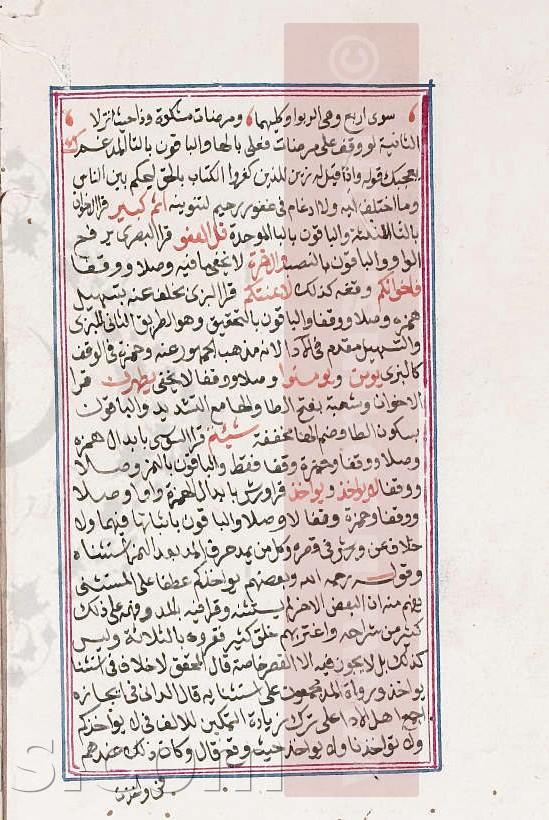 سوى اربع وهي الربوا وكليهما ومرضات مشكوة وذا حيث نزلا
الثانية لو وقف على مرضات فعلي بالهاء والباقون بالتاء المدغم
يعجبك قوله واذا قيل له زين للذين كفروا الكتاب بالحق ليحكم بين الناس
وما اختلف فيه ولا ادغام في غفور رحيم لتنوينه اثم كبير قرا الاخوان
بالثاء المثلثة والباقون بالباء الموحدة قل العفو قرا البصري برفع
الواو والباقون بالنصب والاخرة لا يخفى ما فيه وصلا ووقفا
فاخوانكم وقفه كذلك لاعنتكم قرا البزي بخلف عنه بتسهيل
همزه وصلا ووقفا والباقون بالتحقيق وهو الطريق الثاني للبزي
والتسهيل مقدم في الاداء لانه مذهب الجمهور عنه وحمزة في الوقف
كالبزي يومن ويومنوا وصلا ووقفا لا يخفى يطهرن قرا
الاخوان وشعبة بفتح الطا والها مع التشديد والباقون
بسكون الطا وضم الها مخففة شيتم قرا السوسي بابدال همزه
وصلا ووقفا وحمزة وقفا فقط والباقون بالهمز وصلا
ووقفا لا يواخذ ويواخذ قرا ورش بابدال الهمزة واوا وصلا
ووقفا وحمزة وقفا لا وصلا والباقون باثباتها فيهما ولا
خلاف عن ورش في قصره وكل من يمد حرف المد بعد الهمز استثناه
وقوله رحمه الله وبعضهم يواخذكم عطفا على المستثنى
يفهم منه ان البعض الاخر لم يستثنه وقرا فيه بالمد وفهمه على ذلك
كثير من شراحه واغتر بهم خلق كثير فقروه بالثلاثة وليس
كذلك بل لا يجوز فيه الا القصر خاصة قال المحقق لا خلاف في استثناء
يواخذ ورواة المد مجمعون على استثنايه قال الداني في ايجازه
اجمع اهل الادا على ترك زيادة التمكين للالف في لا يواخذكم
ولا تواخذنا ولا يواخذ حيث وقع قال وكان ذلك عندهم